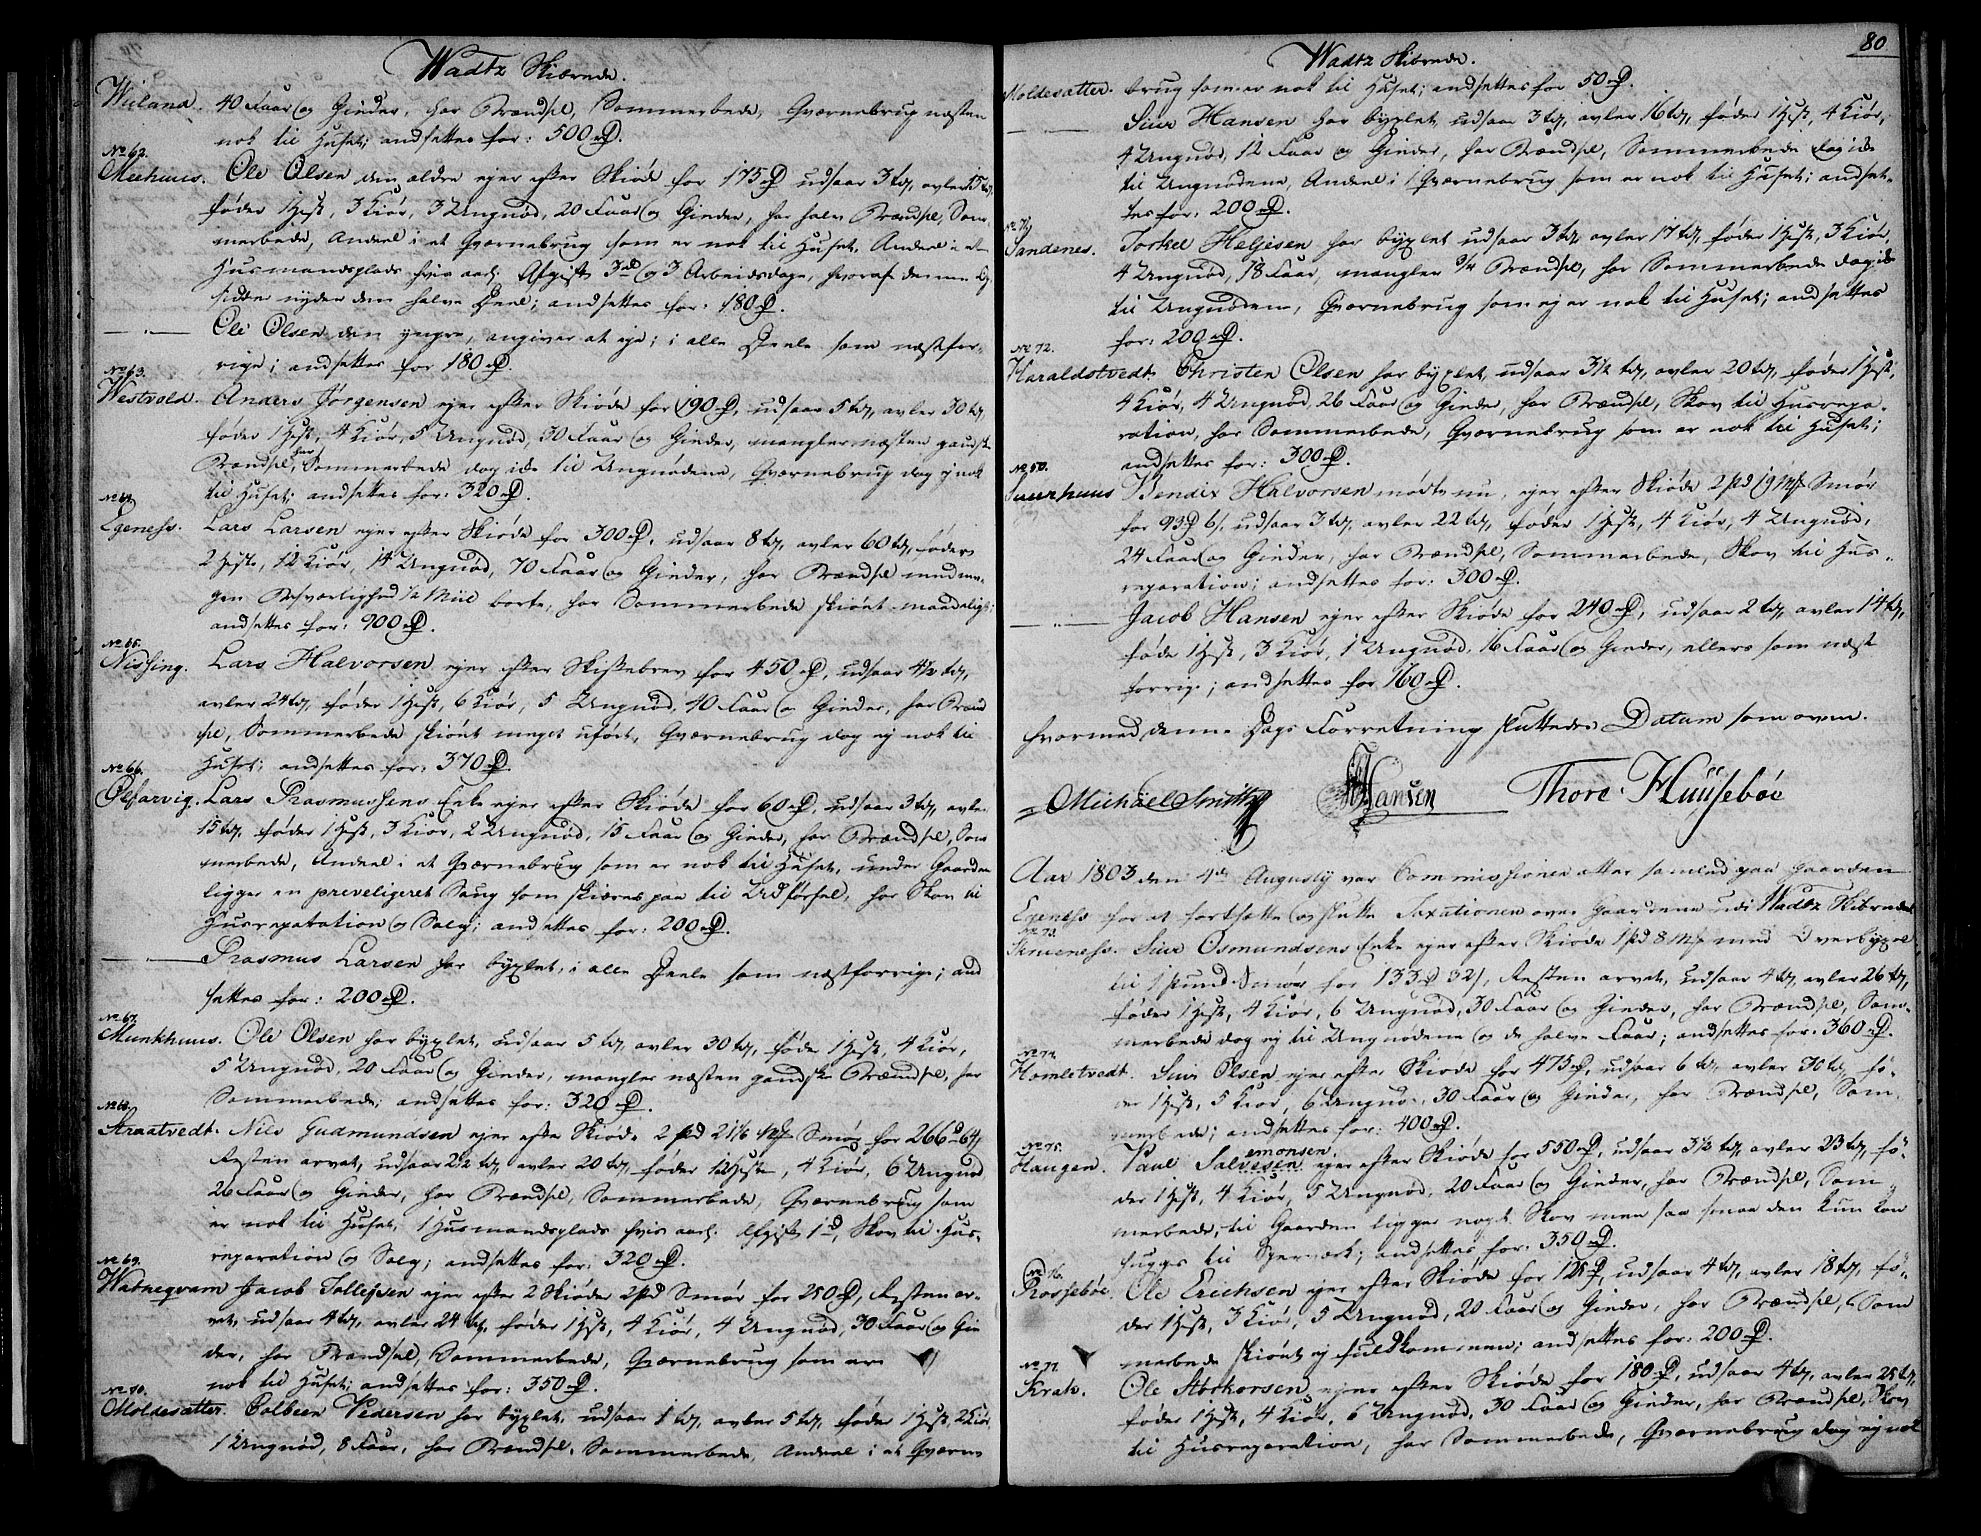 Wadtz Skibrede.
Wieland. 40 Faar og Gieder, har Brændsel, Sommerbede, Qværnebrug næsten
nok til Huset; andsættes for: 500 rD.
No 62.
Meehuus. Ole Olsen den ældre ejer efter Skiøde for 175 rD udsaar 3 tdr, avler 15 tdr,
føder 1 Hest, 3 Kiør, 3 Ungnød, 20 Faar og Gieder, har halv Brændsel, Som-
merbede, Andeel i et Qværnebrug som er nok til Huset, Andeel i en
Husmandsplads hvis aarl. Afgift 3 rD og 3 Arbeidsdage, hvoraf denne Op-
sidder nyder den halve Deel; andsættes for: 180 rD.
— " — Ole Olsen den yngre, angiver at eje; i alle Deele som næstfor-
rige; andsættes for 180 rD.
No 63.
Westvold. Anders Jørgensen ejer efter Skiøde for 190 rD, udsaar 5 tdr, avler 30 tdr,
føder 1 Hest, 4 Kiør, 5 Ungnød, 30 Faar og Gieder, mangler næsten gandske
Brændsel, har Sommerbede dog ide til Ungnødene, Qværnebrug dog ej nok
til Huset; andsættes for: 320 rD.
No 64.
Egeness. Lars Larsen ejer efter Skiøde for 300 rD. udsaar 8 tdr, avler 60 tdr, føder
2 Heste, 12 Kiør, 14 Ungnød, 70 Faar og Gieder, har Brændsel med me-
gen Besværlighed ½ Miil borte, har Sommerbede skiønt maadelig;
andsættes for: 900 rD.
No 65.
Nissing. Lars Halvorsen ejer efter Skiftebrev for 450 rD, udsaar 4½ tdr,
avler 24 tdr, føder 1 Hest, 6 Kiør, 5 Ungnød, 40 Faar og Gieder, har Brænd
sel, Sommerbede skiønt meget uført, Qværnebrug dog ej nok til
Huset; andsættes for: 370 rD.
No 66.
Ølfarvig. Lars Rasmussens Enke ejer efter Skiøde for 60 rD, udsaar 3 tdr, avler
15 tdr, føder 1 Hest, 3 Kiør, 2 Ungnød, 15 Faar og Gieder, har Brændsel, Som
merbede, Andeel i et Qværnebrug som er nok til Huset, under Gaarden
ligger en preveligeret Saug som skiæres paa til Udførsel, har Skov til
Husreparation og Salg; andsættes for: 200 rD.
— Rasmus Larsen har byxlet, i alle Deele som næstforrige; and
sættes for: 200 rD.
No 67.
Munkhuus. Ole Olsen har byxlet, udsaar 5 tdr, avler 30 tdr, føder 1 Hest, 4 Kiør,
5 Ungnød, 20 Faar og Gieder, mangler næsten gandske Brændsel, har
Sommerbede; andsættes for: 320 rD.
No 68.
Straatvedt. Nils Gudmundsen ejer efter Skiøde 2 pd 21⅙ mrk Smør for 266 rD 64 s,
Resten arvet, udsaar 2½ tdr, avler 20 tdr, føder 1 Hest, 4 Kiør, 6 Ungnød
26 Faar og Gieder, har Brændsel, Sommerbede, Qværnebrug som
er nok til Huset, 1 Husmandsplads hvis aarl. Afgift 1 rD, Skov til Hus-
reparation og Salg; andsættes for: 320 rD.
No 69.
Watneqvam Jacob Tollefsen ejer efter 2 Skiøder 2 pd Smør for 250 rD, Resten ar-
vet, udsaar 4 tdr, avler 24 tdr, føder 1 Hest, 4 Kiør, 4 Ungnød, 30 Faar og Gie
der, har Brændsel, Sommerbede, Qværnebrug som er
nok til Huset; andsættes for: 350 rD.
No 70.
Moldesætter. Colbeen Pedersen har byxlet, udsaar 1 td, avler 5 tdr, føder 1 Hest, 2 Kiør
1 Ungnød, 8 Faar, har Brændsel, Sommerbede, Andeel i et Qværne
80
Wadtz Skibrede.
Moldesætter. brug som er nok til Huset; andsættes for 50 rD.
— " — Siur Hansen har byxlet, udsaar 3 tdr, avler 16 tdr, føder 1 Hest, 4 Kiør,
4 Ungnød, 12 Faar og Gieder, har Brændsel, Sommerbede dog ide
til Ungnødene, Andeel i 1 Qværnebrug som er nok til Huset; andsæt-
tes for: 200 rD.
No 71
Sandenes. Torkel Heljesen har byxlet udsaar 3 tdr, avler 17 tdr, føder 1 Hest, 3 Kiør,
4 Ungnød, 18 Faar, mangler ¾ Brændsel, har Sommerbede dog ide
til Ungnødene, Qværnebrug som ej er nok til Huset; andsættes
for: 200 rD.
No 72.
Haraldstvedt. Christen Olsen har byxlet, udsaar 3½ tdr, avler 20 tdr, føder 1 Hest,
4 Kiør, 4 Ungnød, 26 Faar og Gieder, har Brændsel, Skov til Husrepa-
ration, har Sommerbede, Qværnebrug som er nok til Huset;
andsættes for: 300 rD.
No 50.
Suurhuus Bendix Halvorsen mødte nu, ejer efter Skiøde 2 pd 19 mrk Smør
for 93 rD 6 s. udsaar 3 tdr, avler 22 tdr, føder 1 Hest, 4 Kiør, 4 Ungnød,
24 Faar og Gieder, har Brændsel, Sommerbede, Skov til Hus-
reparation; andsættes for: 300 rD.
— " — Jacob Hansen ejer efter Skiøde for 240 rD, udsaar 2 tdr, avler 14 tdr,
føder 1 Hest, 3 Kiør, 1 Ungnød, 16 Faar og Gieder, ellers som næst
forrige; andsættes for 160 rD.
hvormed denne Dags Forretning sluttedes Datum som oven.
Michael Smith Hansen Thore Huusebøe
Aar 1803 den 4de Augustij var Commissionen atter samled paa Gaarden
Egeness for at fortsætte og slutte Taxationen over Gaardene udi Wadtz Skibrede
No 73.
Skrueness. Siur Osmundsens Enke ejer efter Skiøde 1 pd 8 mrk med Overbyxel
til 1 pund Smør for 133 rD 32 s, Resten arvet, udsaar 4 tdr, avler 26 tdr,
føder 1 Hest, 4 Kiør, 6 Ungnød, 30 Faar og Gieder, har Brændsel, Som-
merbede dog ej til Ungnødene og de halve Faar; andsættes for: 360 rD.
No 74.
Homletvedt. Siur Olsen ejer efter Skiøde for 475 rD, udsaar 6 tdr, avler 30 tdr, fø-
der 1 Hest, 5 Kiør, 6 Ungnød, 30 Faar og Gieder, har Brændsel, Som-
merbede; andsættes for: 400 rD.
No 75.
Haugen. Paul Salvesen emonsen. ejer efter Skiøde for 550 rD, udsaar 3½ tdr, avler 23 tdr, fø-
der 1 Hest, 4 Kiør, 5 Ungnød, 20 Faar og Gieder, har Brændsel, Som-
merbede, til Gaarden ligger noget Skov men saa smaa den kun kan
hugges til Sperværk; andsættes for: 350 rD.
No 76.
Rossebøe. Ole Erichsen ejer efter Skiøde for 125 rD, udsaar 4 tdr, avler 18 tdr, fø-
der 1 Hest, 3 Kiør, 5 Ungnød, 20 Faar og Gieder, har Brændsel, Som
merbede skiønt ej fuldkommen; andsættes for: 200 rD.
No 77.
Krak. Ole Storkorsen ejer efter Skiøde for 180 rD, udsaar 4 tdr, avler 25 tdr,
føder 1 Hest, 4 Kiør, 6 Ungnød, 30 Faar og Gieder, har Brændsel, Skov
til Husreparation, har Sommerbede, Qværnebrug dog ej nok